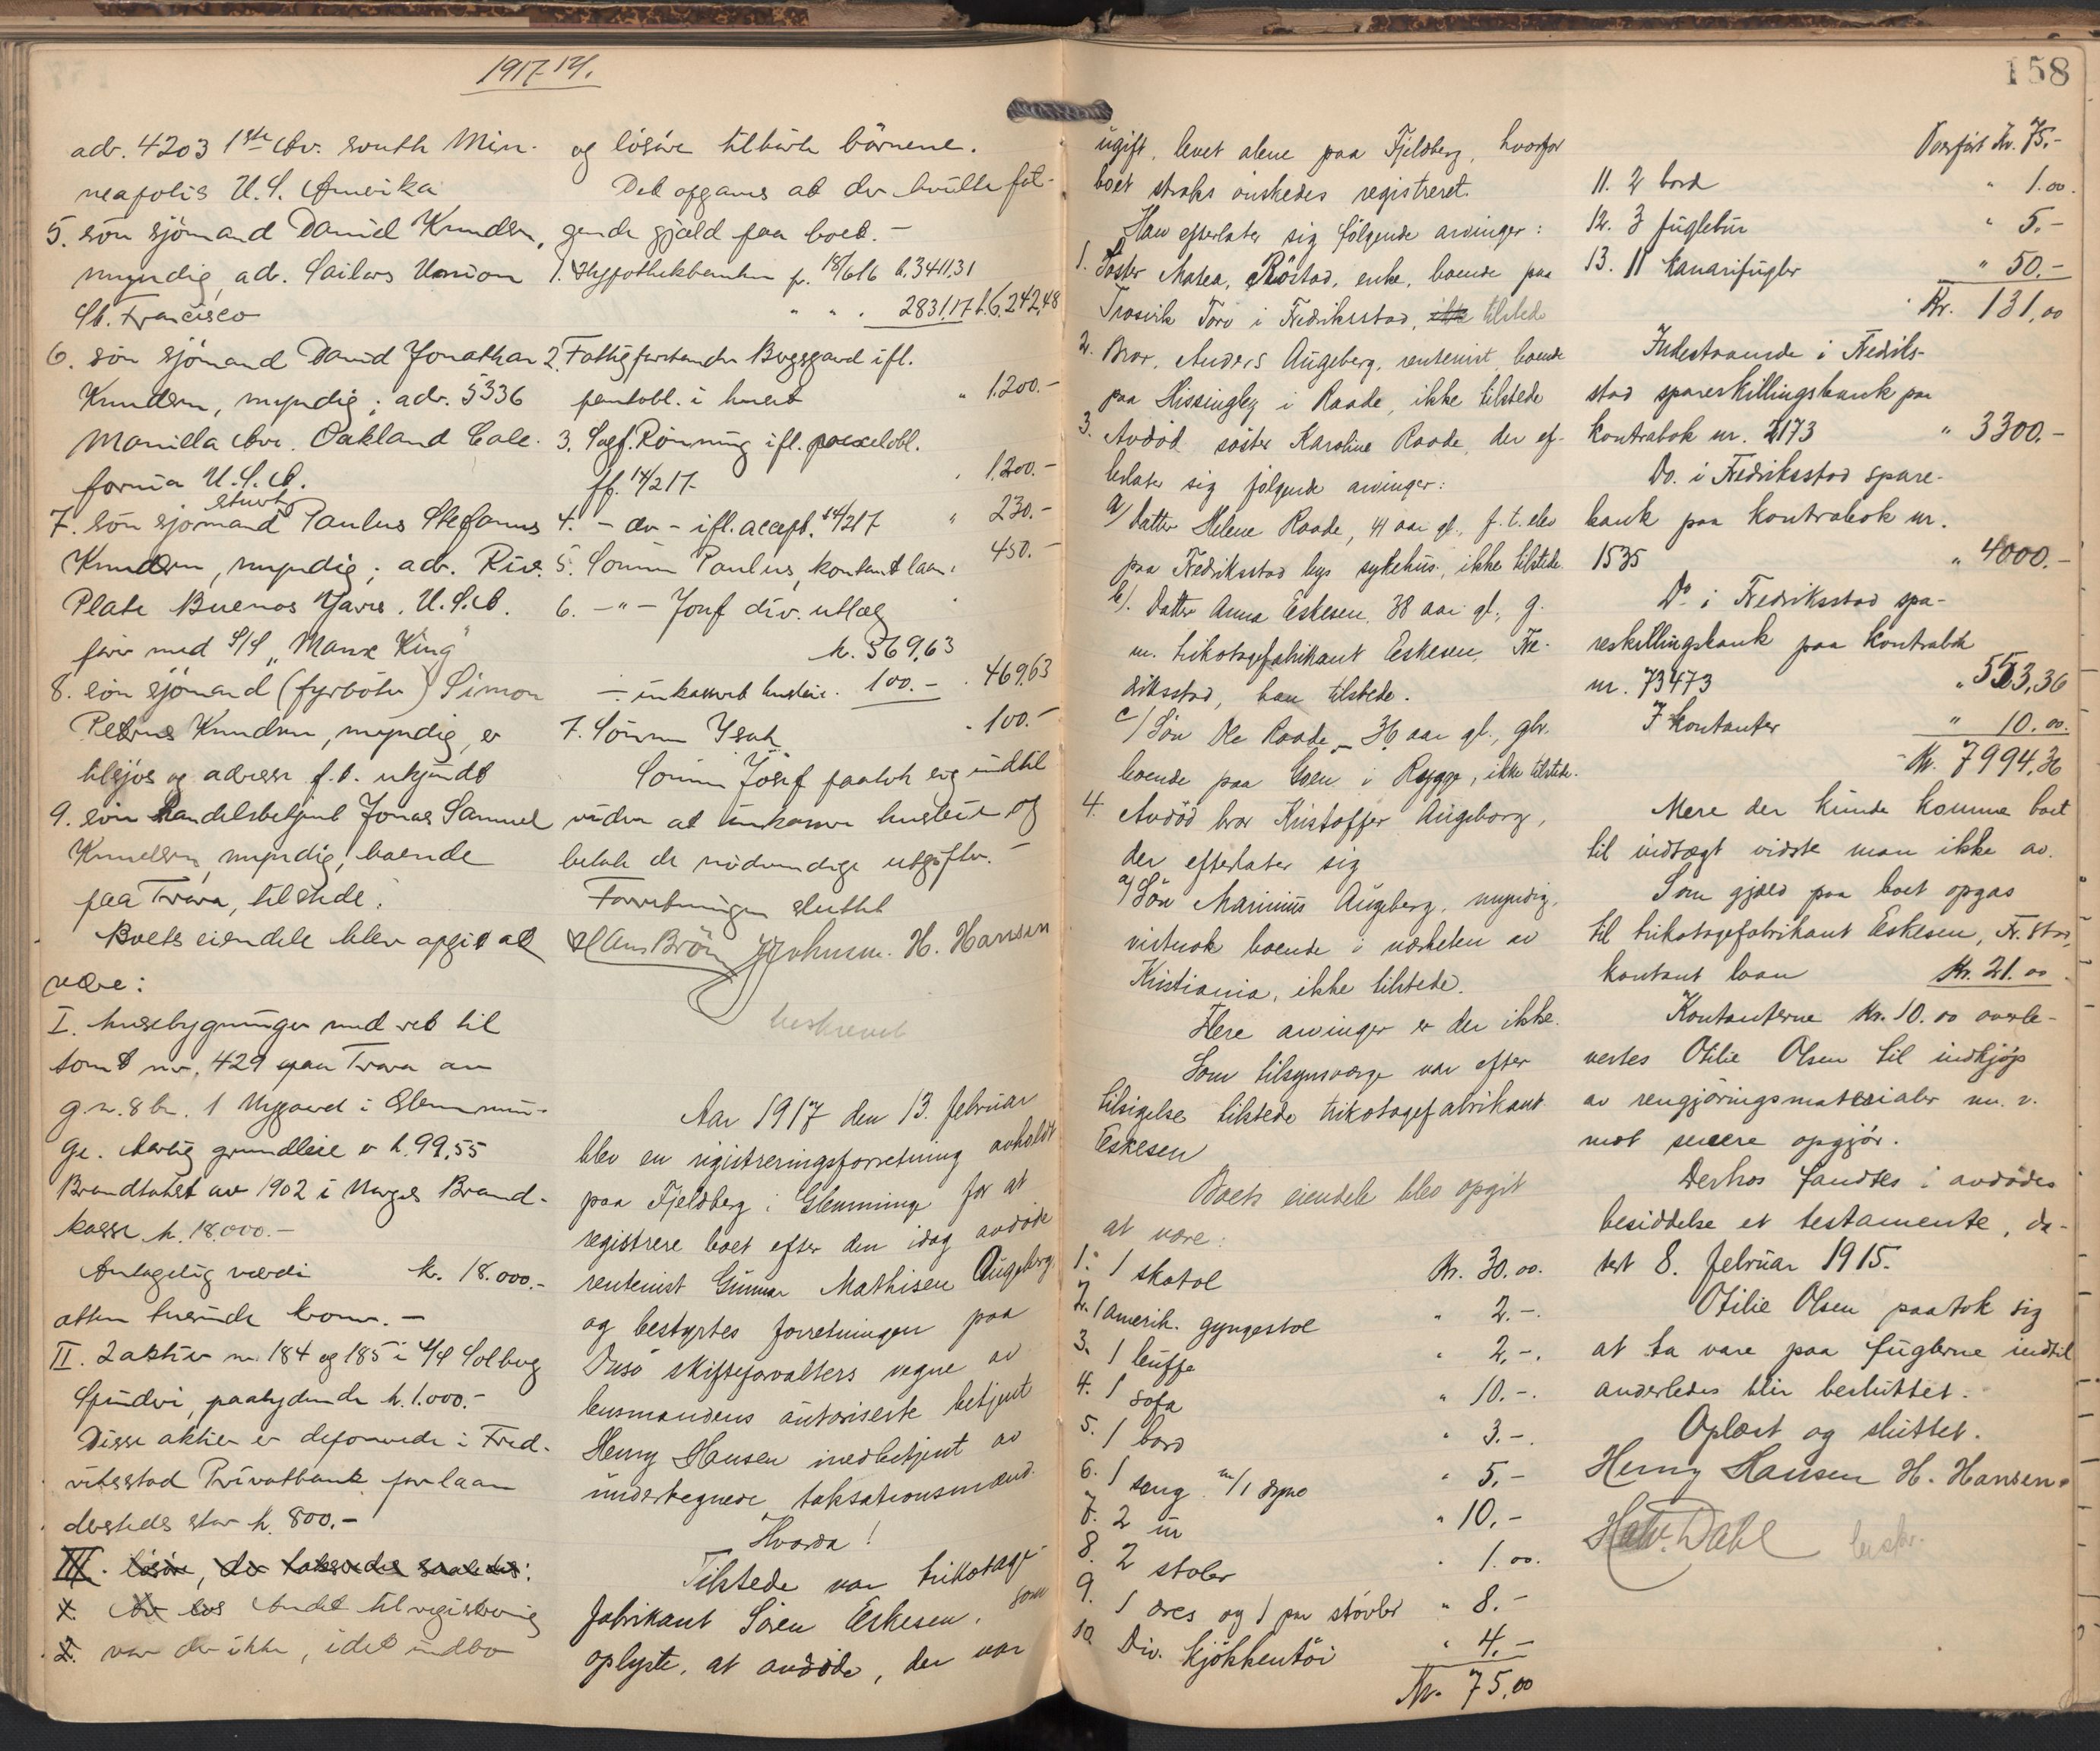 1917 14/2.
adr. 4203 1ste Av. south Min-
neapolis U.S. Amerika
5. sön sjömand David Knudsen,
myndig, adr. Sailors Union
St. Francisco
6. sön sjömand David Jonathan
Knudsen, myndig; adr. 5336
Manilla Ave. Oakland Cale-
fornia U.S.A.
7. sön sjömand stuert Paulus Stefanus
Knudsen, myndig; adr. Riv.
Plate Buenos Yares. U.S.A.
farer med S/S "Manx King"
8. sön sjömand (fyrböter) Simon
Petrus Knudsen, myndig, er
tilsjös og adresse f.t. ukjendt
9. sön Handelsbetjent Jonas Samuel
Knudsen, myndig, boende
paa Trara, tilstede.
Boets eiendele blev opgit at
være:
I. husebygninger med ret til
tomt nr. 429 paa Trara av
g.n. 8 br. 1 Nygaard i Glemmin-
ge. Aarlig grundleie er kr. 99,55
Brandtakst av 1902 i Norges Brand-
kasse kr. 18.000.-
Antagelig værdi kr. 18.000.-
atten tusinde kroner. -
II. 2 aktier nr. 184 og 185 i A/S Solberg
Spinderi, paalydende kr. 1.000.-
Disse aktier er deponerede i Fred-
riksstad Privatbank for laan
dersteds stor kr. 800.-
III. lösöre, der taksertes saaledes:
1. Andet til registrering
2. var der ikke, idet indbo
og lösöre tilhörte börnene.
Det opgaves at der hviler föl-
gende gjæld paa boet. -
1. Hypothekbanken pr. 18/6 16 kr. 3411.31
" " " 2831.17 kr. 6.242,48
2. Fattigforstander Bugsgaard ifl.
pantobl. i huset " 1.200.-
3. Sagf. Rönning ifl. panteobl.
ff. 14/2 17. " 1.200.-
4. - do - ifl. accept. 14/2 17 " 230.-
5. Sönnen Paulus, kontant laan " 450.-
6. - " - Josef div. utlæg
kr. 569,63
÷ inkasseret husleie. 100.- " 469,63
7. Sönnen Isak " 100.-
Sönnen Josef paatok sig indtil
videre at inkassere husleie og
betale de nödvendige utgifter. -
Forretningen sluttet
Hans Brön J. Johnsen. H. Hansen
beskrevet
Aar 1917 den 13. februar
blev en registreringsforretning avholdt
paa Fjeldberg i Glemminge for at
registrere boet efter den idag avdöde
rentenist Gunnar Mathisen Augeberg
og bestyrtes forretningen paa
Onsö skifteforvalters vegne av
lensmandens autoriserte betjent
Henry Hansen medbetjent av
undertegnede taksationsmænd.
Hvorda!
Tilstede var trikotage-
fabrikant Sören Eskesen, som
oplyste, at avdöde, der var
158
ugift, levet alene paa Fjeldberg, hvorfor
boet straks önskedes registreret.
Han efterlater sig fölgende arvinger:
1. Söster Matea Röstad, enke, boende paa
Trosvik Torv i Fredriksstad, ikke tilstede
2. Bror, Anders Augeberg, rentenist, boende
paa Missingby i Raade, ikke tilstede
3. Avdöd söster Karoline Raade, der ef-
terlater sig fölgende arvinger:
a/ Datter Helene Raade, 41 aar gl., f.t. elev
paa Fredriksstad bys sykehus, ikke tilstede.
b/. Datter Anna Eskesen, 38 aar gl., g.
m. trikotagefabrikant Eskesen, Fre-
driksstad, han tilstede.
c/ Sön Ole Raade, 36 aar gl., gbr.
boende paa Goen i Rygge, ikke tilstede.
4. Avdöd bror Kristoffer Augeberg,
der efterlater sig
a/ Sön Marinius Augeberg, myndig,
vistnok boende i nærheten av
Kristiania, ikke tilstede.
Flere arvinger er der ikke.
Som tilsynsværge var efter
tilsigelse tilstede trikotagefabrikant
Eskesen
Boets eiendele blev opgit
at være:
1. 1 skatol Kr. 30.00.
2. 1 amerik. gyngestol " 2.-.
3. 1 buffe " 2,-.
4. 1 sofa " 10.-.
5. 1 bord " 3.-.
6. 1 seng m/1 dyne " 5,-
7. 2 ur " 10.-
8. 2 stoler " 1.00.
9. 1 öres og 1 par stövler " 8.-
10. Div. kjökkentöi " 4.-
Kr. 75,00
Overfört kr. 75.-
11. 2 bord " 1.00.
12. 3 fuglebur " 5.-
13. 11 kanarifugler " 50.-
Kr. 131,00
Indestaaende i Fredriks-
stad spareskillingsbank paa
kontrabok nr. 2173 " 3300.-
Do. i Fredriksstad spare-
bank paa kontrabok nr.
1535 " 4000.-
Do. i Fredriksstad spa-
reskillingsbank paa kontrabok
nr. 73473 " 553,36
I kontanter " 10.00.
Kr. 7994,36
Mere der kunde komme boet
til indtægt vidste man ikke av.
Som gjæld paa boet opgas
til trikotagefabrikant Eskesen, Fr. stad,
kontant laan Kr. 21.00
Kontanterne Kr. 10.00 overle-
vertes Otilie Olsen til indkjöp
av rengjöringsmaterialer m. v.
mot senere opgjör.
Derhos fandtes i avdödes
besiddelse et testamente, da-
tert 8. februar 1915.
Otilie Olsen paatok sig
at ta vare paa fuglerne indtil
anderledes blir besluttet.
Oplæst og sluttet.
Henry Hansen H. Hansen.
Halv. Dahl beskr.